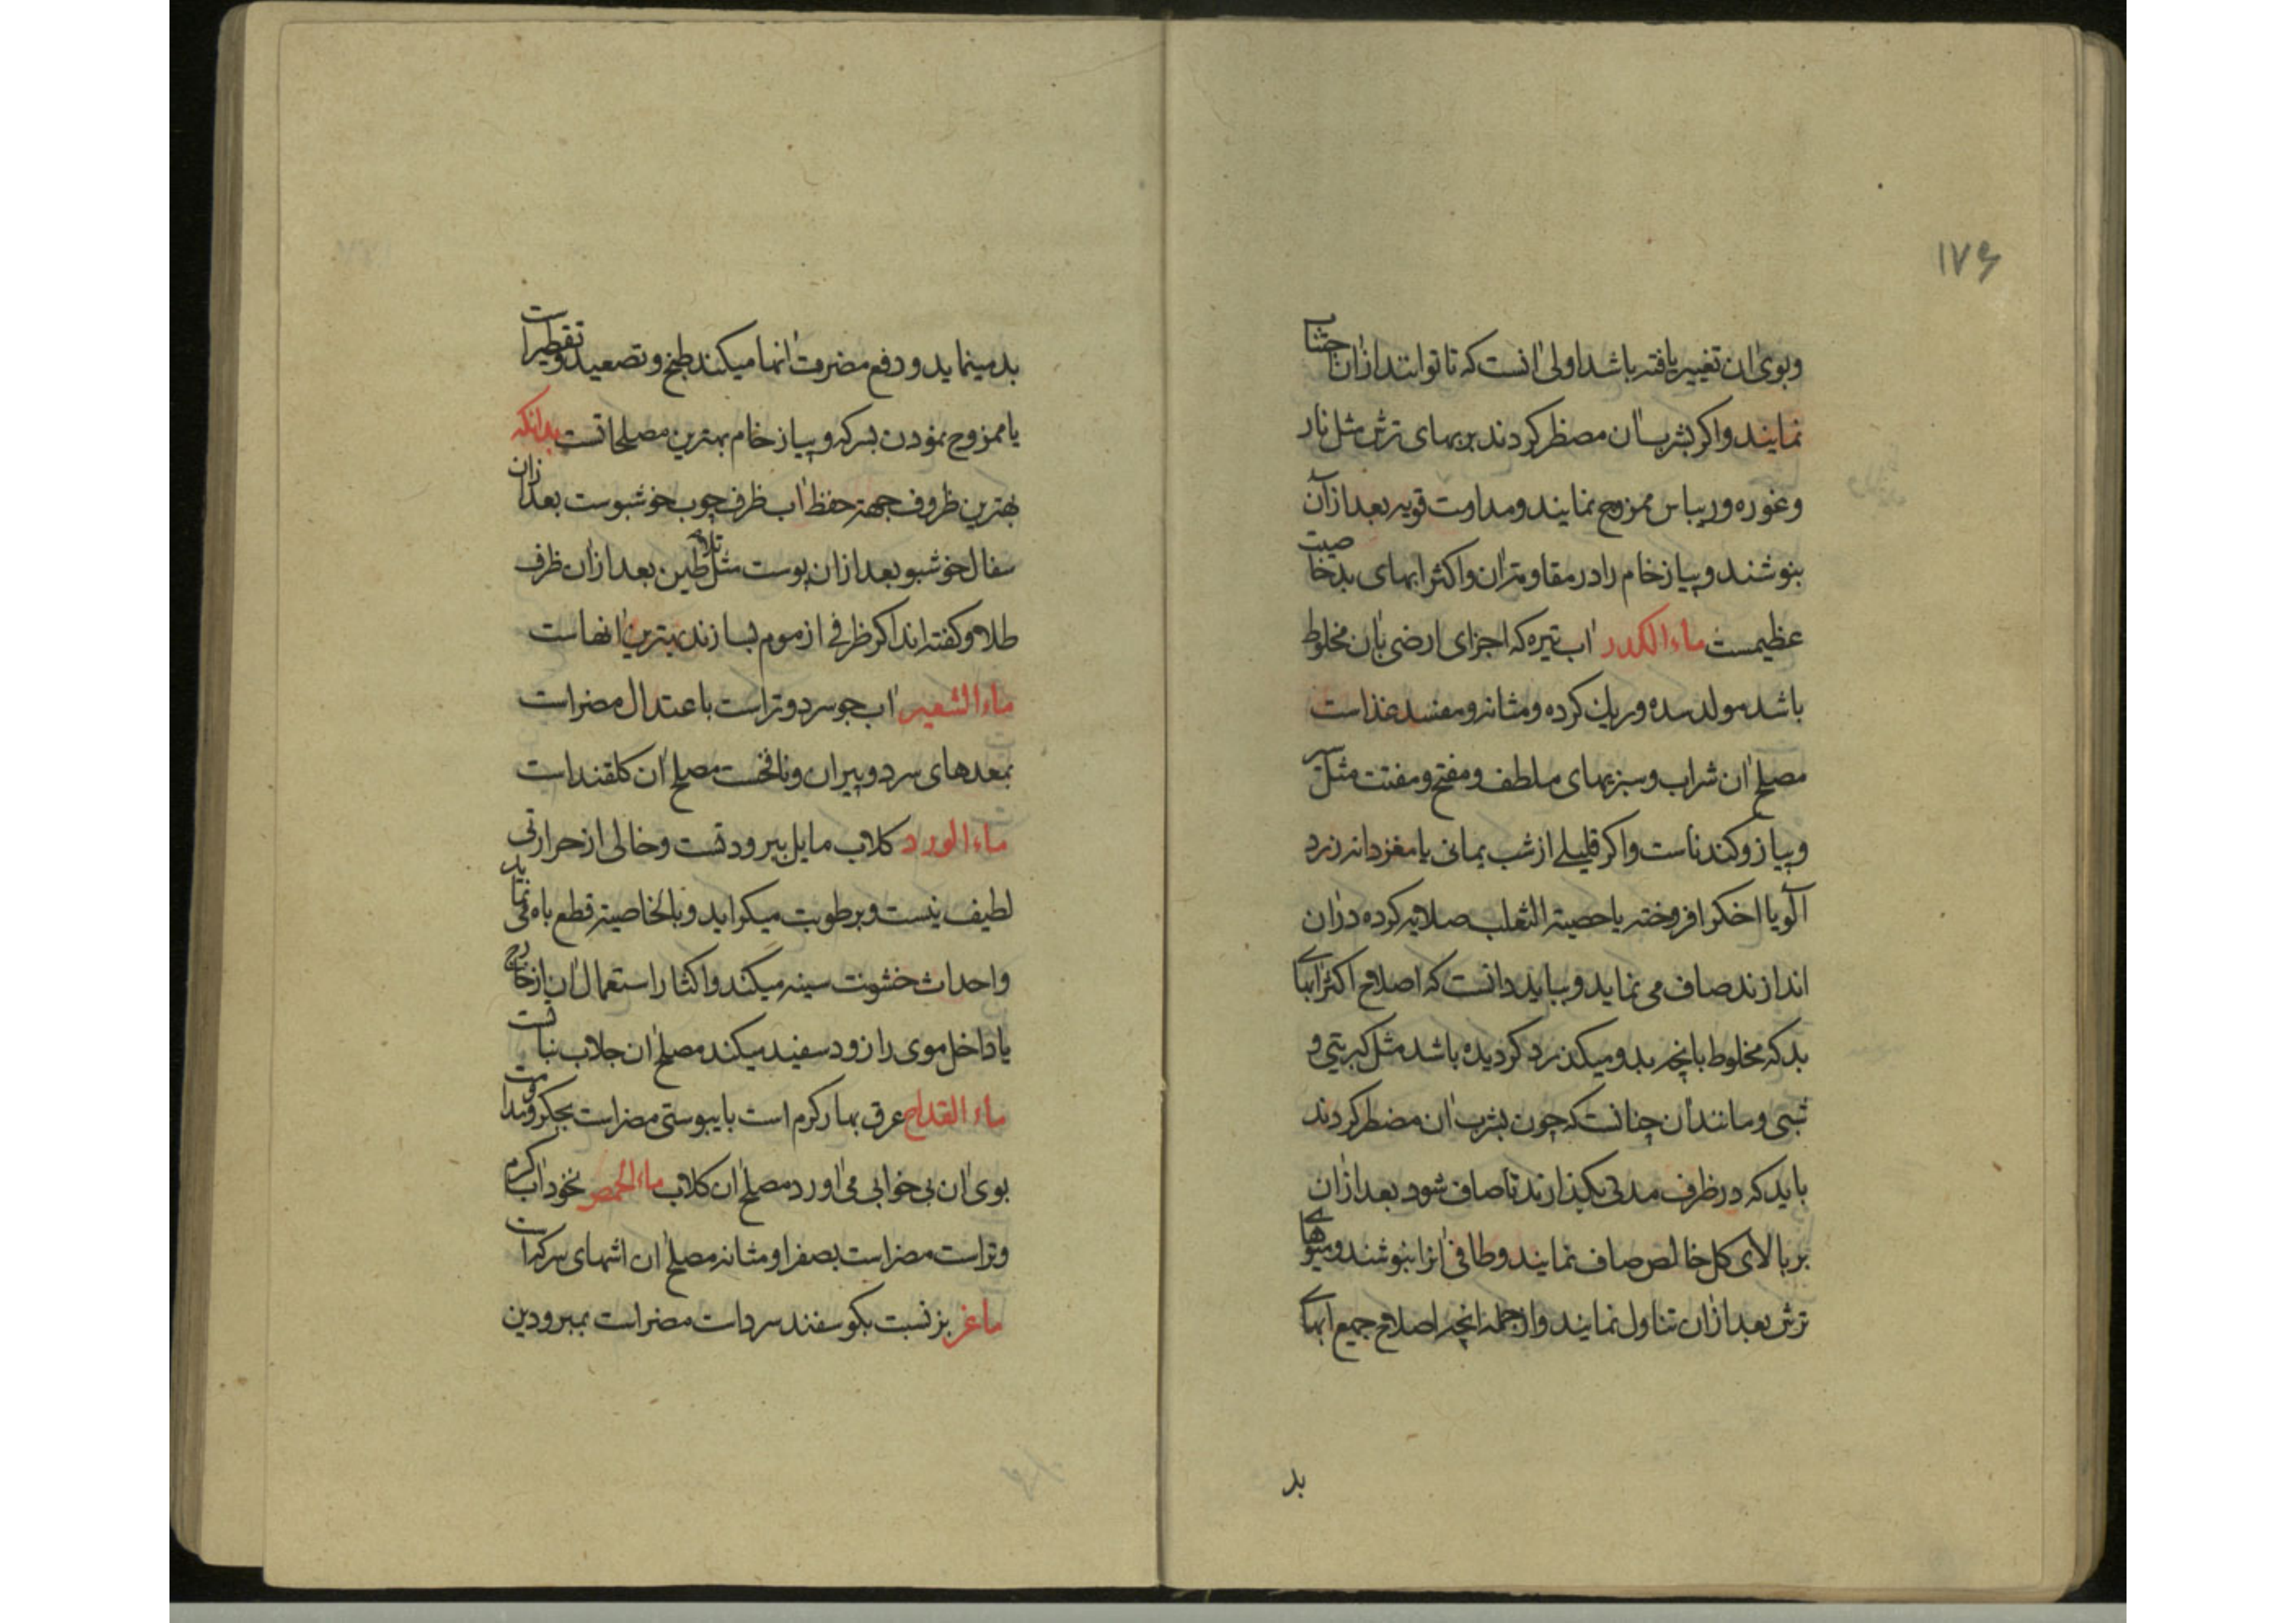 ۱۷۶
وبوی ان تغییر یافته باشد اولی انست که تا توانند ازان اجتناب
نمایند واکر بشرب ان مضطر کردند بربهای ترش مثل نار
وغوره وریباس ممزوج نمایند ومداومت قویه بعد ازآن
بنوشند وپیاز خام را در مقاومت ان واکثر ابهای بد خاصیت
عظیمست ماء الکدر اب تیره که اجزای ارضی بان مخلوط
باشد مولد سده وریك کرده ومثانه ومفسد غذاست
مصلح ان شراب وسبزیهای ملطف ومفتح ومفتت مثل سیر
وپیاز وکندناست واکر قلیلے از شب یمانی یا مغز دانه زرد
آلو یا اخکر افروخته یا خصیة الثعلب صلایه کرده دران
اندازند صاف می نماید وبباید دانست که اصلاح اکثر ابهاے
بد که مخلوط بانچه بدو میکذرد کردیده باشد مثل کبریتی و
شبی ومانند ان چنانست که چون بشرب ان مضطر کردند
باید که در ظرف مدتی بکذارند تا صاف شود بعد ازان
بر بالای کل خالص صاف نمایند وطافی انرا بنوشند ومیوهاے
ترش بعد ازان تناول نمایند واز جمله انچه اصلاح جمیع ابهاے
بد
بد مینماید ودفع مضرت انها میکند طبخ وتصعید وتقطیر است
یا ممزوج نمودن بسرکه وپیاز خام بهترین مصلحاتست بدانکه
بهترین ظروف جهة حفظ اب ظرف چوب خوشبوست بعد ازان
سفال خوشبو بعد ازان پوست مثل طین بعد ازان ظرف
طلا وکفته اند اکر ظرفے از موم بسازند بهترین انهاست
ماء الشعیر اب جو سرد وتر است با عتدال مضر است
بمعدهای سرد وپیران ونافخست مصلح ان کلقند است
ماء الورد کلاب مایل ببرودتست وخالی از حرارتی
لطیف نیست وبرطوبت میکراید وبالخاصیة قطع باه می نماید
واحداث خشونت سینه میکند واکثار استعمال ان از خارج
یا داخل موی را زود سفید میکند مصلح ان جلاب نباتست
ماء القداح عرق بهار کرم است با یبوستی مضر است بجکر ومداومت
بوی ان بی خوابی می اورد مصلح ان کلاب ماء الحمص نخود اب کرم
وتر است مضر است بصفرا ومثانه مصلح ان اشهای سرکه است
ماغز بز نسبت بکوسفند سرد است مضر است بمبرودین